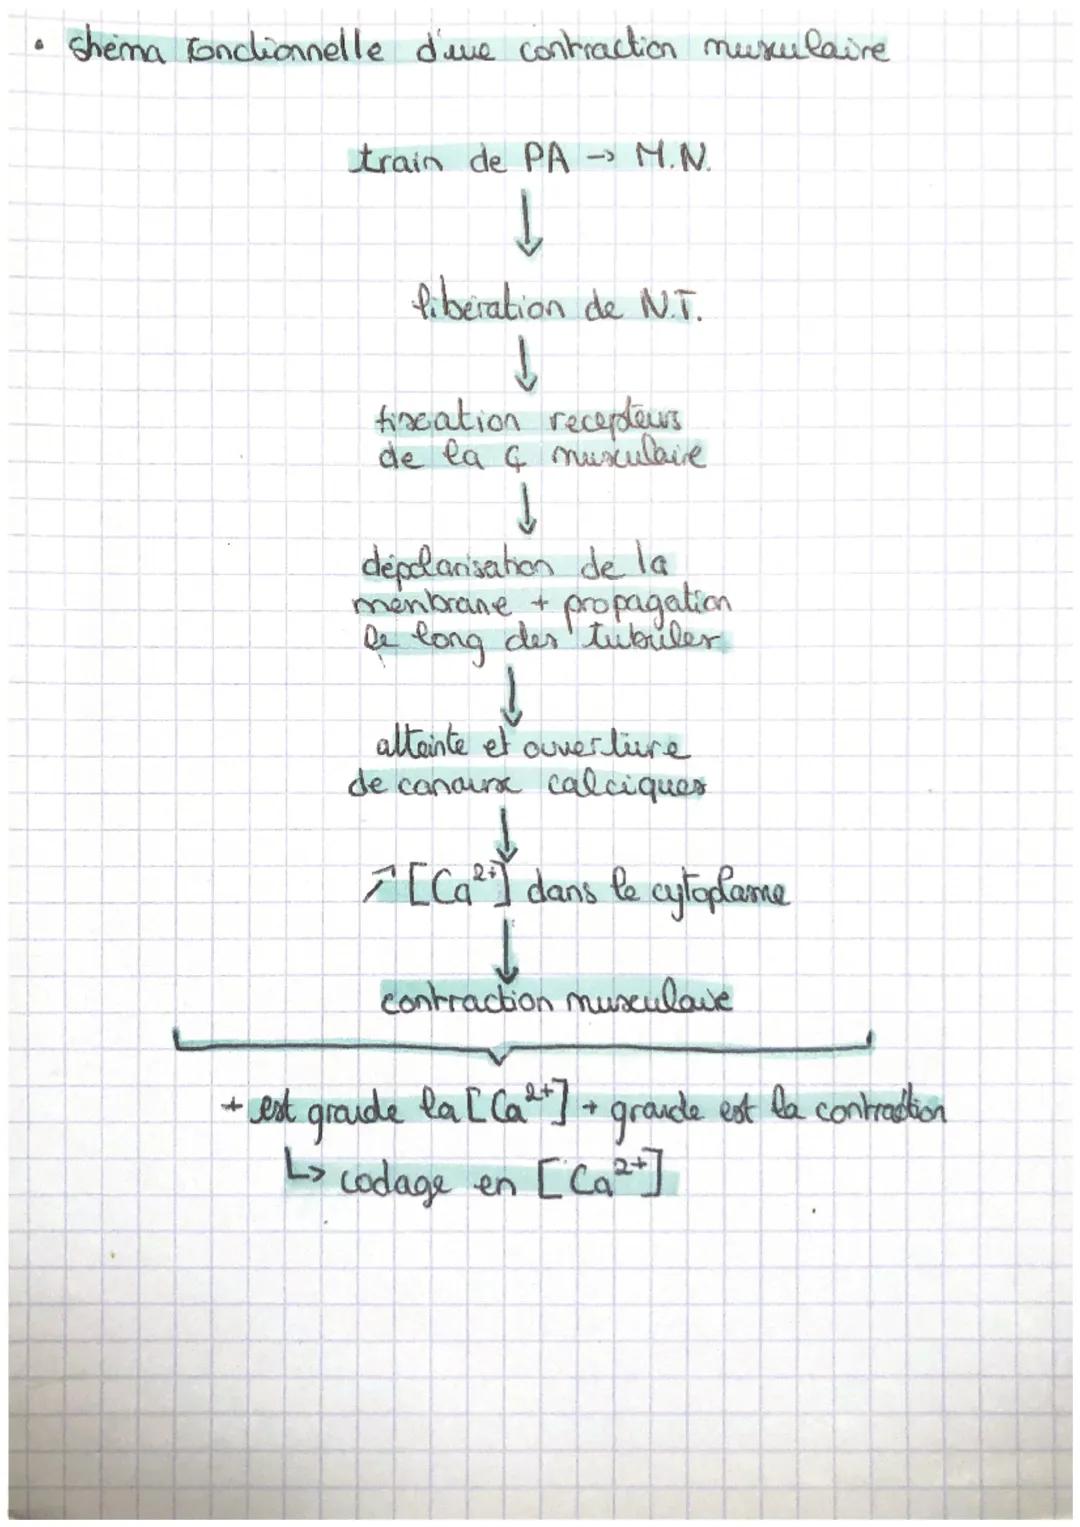 • shéma fonctionnelle d'une contraction musculaire
train de PA → M.N.
↓
libération de N.T.
↓
fixation recepteurs
de la ¢ musculaire
↓
dépolarisation de la
menbrane + propagation
le long des tubules
↓
atteinte et ouverture
de canaux calciques
↓
↗ [Ca²⁺] dans le cytoplame
↓
contraction musculaire
+ est grande la [Ca²⁺] + grande est la contraction
↳ codage en [Ca²⁺]